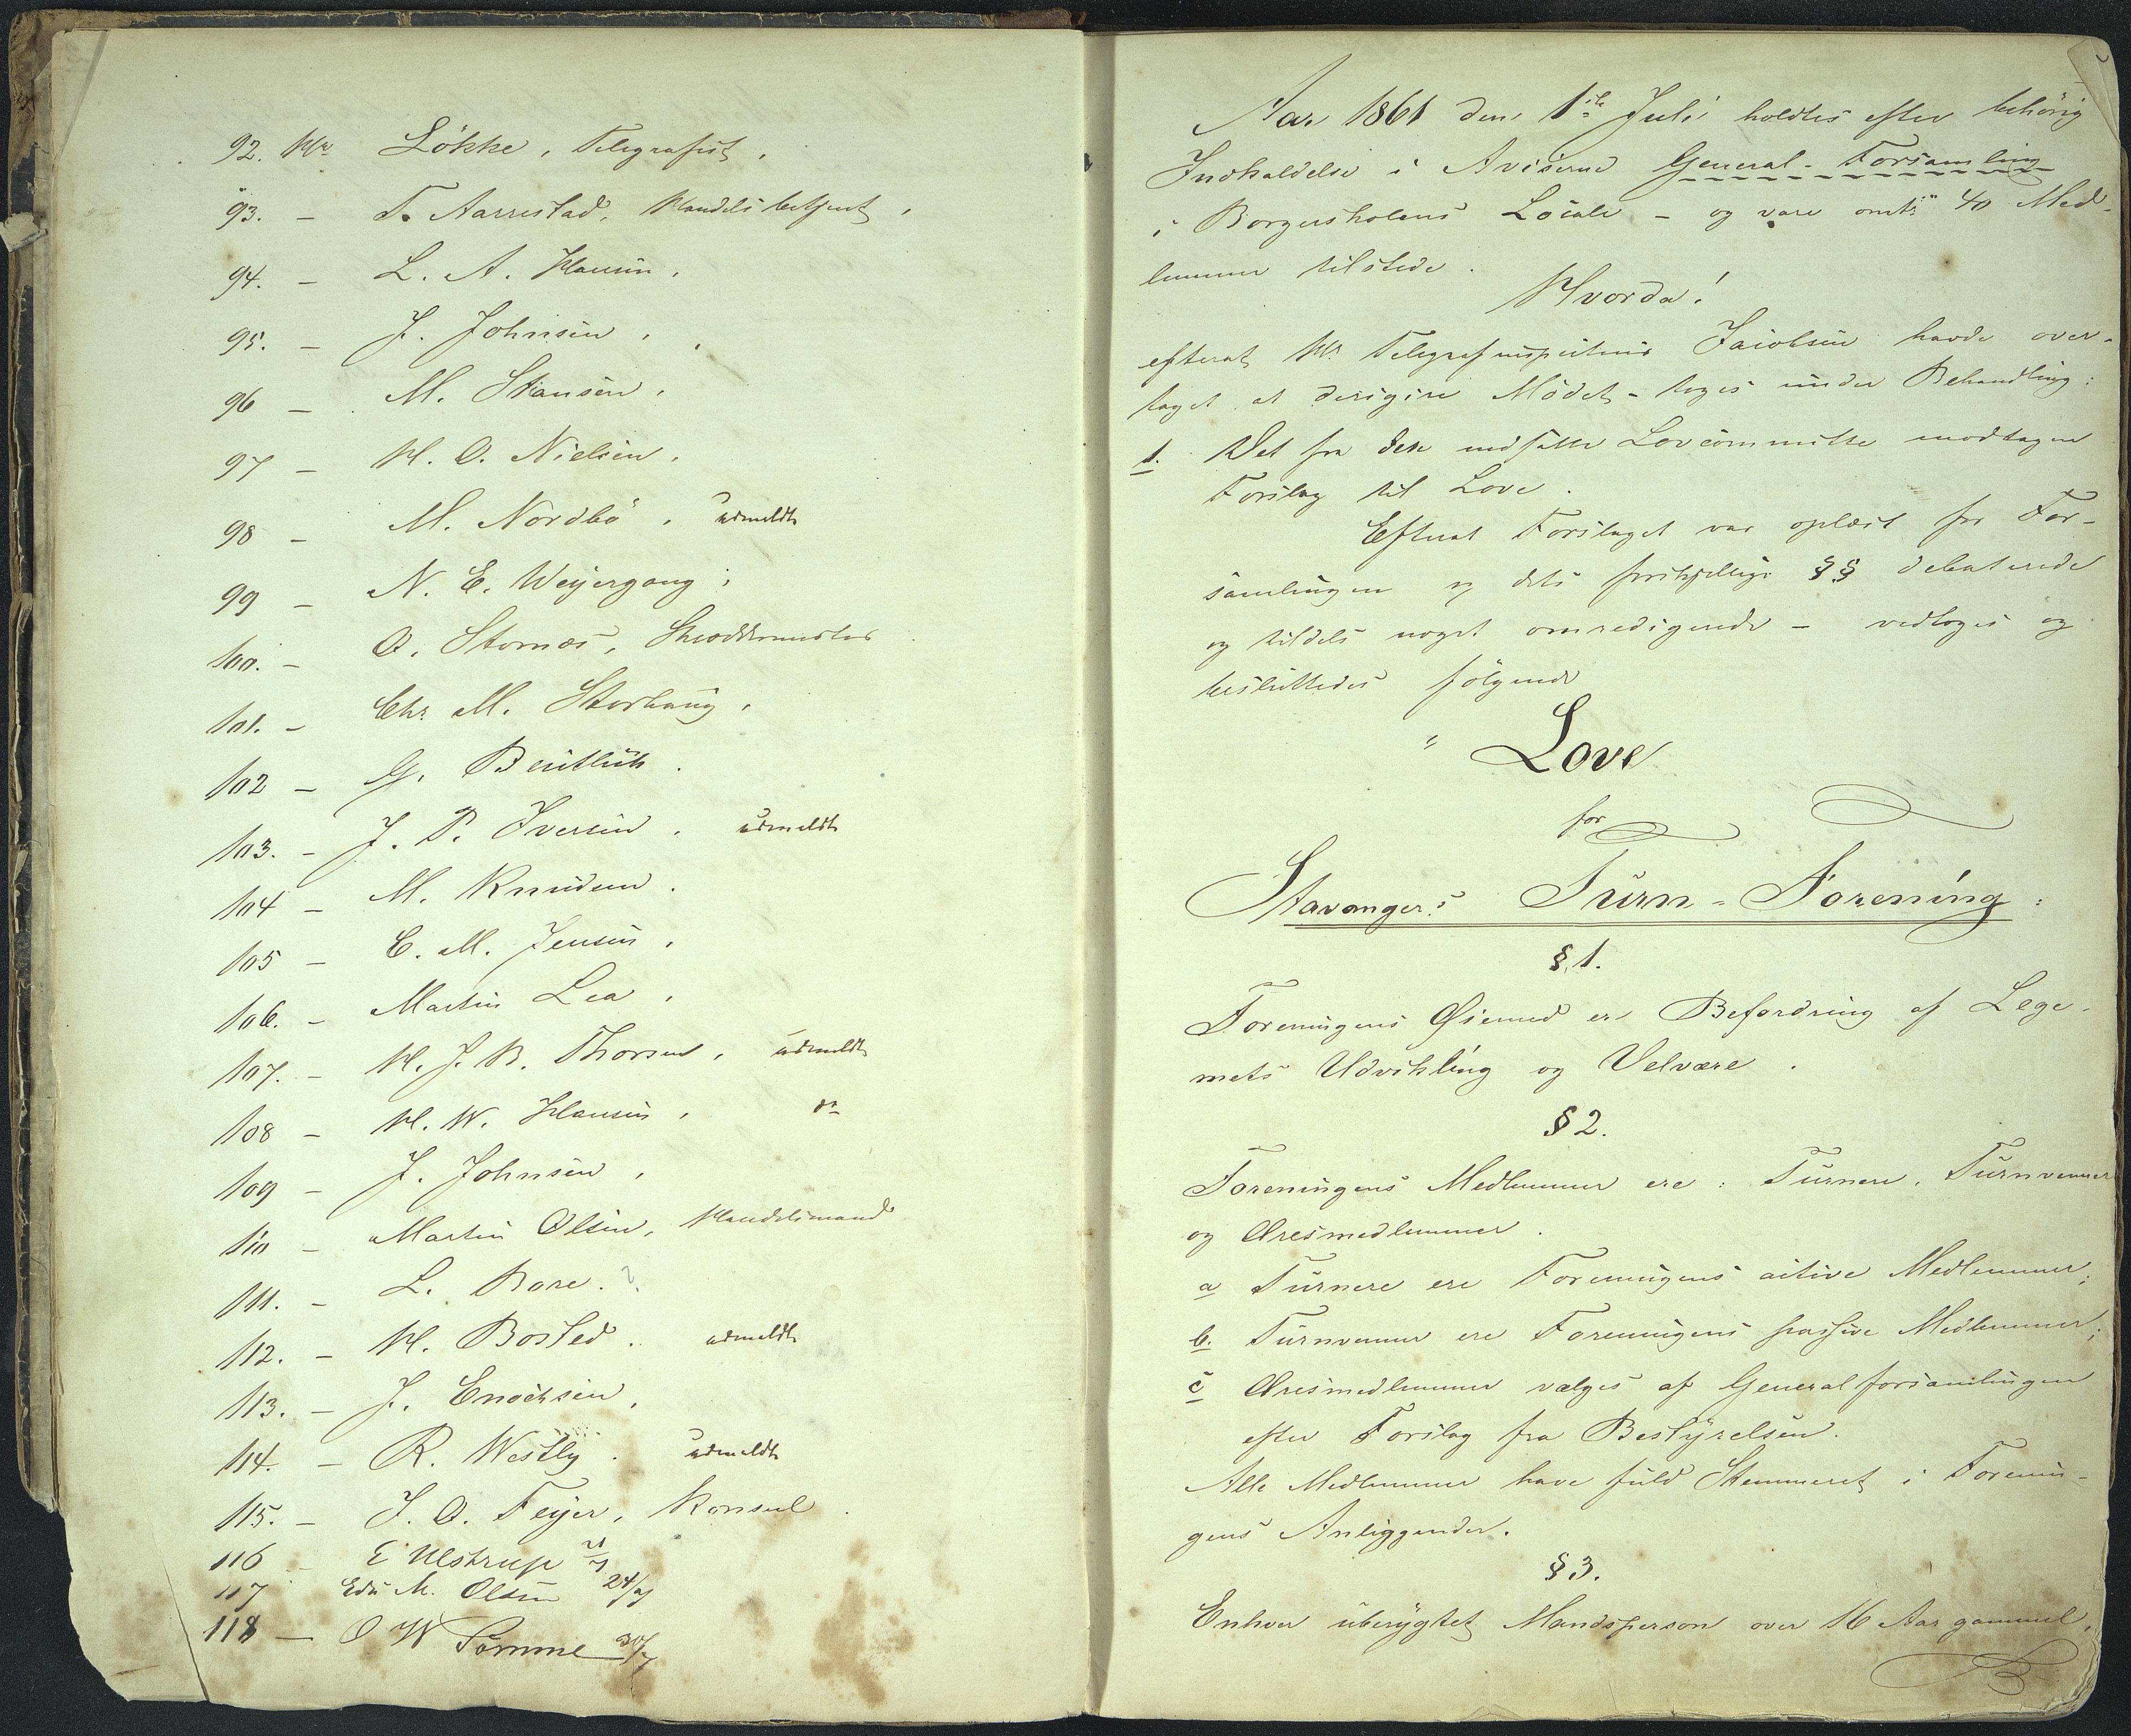 92. Hr Lökke, Telegrafist,
93. – T. Aarrestad, Handelsbetjent,
94. – L. A. Hansen,
95. – J. Johnsen,
96 – M. Hansen,
97 – H. O. Nielsen,
98 – M. Nordbö, udmeldt
99 – N. E. Weyergang,
100. – O. Stornæs, Skræddermester
101. – Chr M. Storhaug,
102 – G.
103. – J. P. Iversen, udmeldt
104 – M. Knudsen.
105 – C. M. Jensen,
106. – Martin Lea,
107. – H. J. B. Thorsen, udmeldt
108 – H. W. Hansen, do
109 – J. Johnsen,
110 – Martin Olsen, Handelsmand
111. – L. Bore. ?
112. – H. Bosted. udmeldt
113. – J. Enochsen,
114. – R. Westly. udmeldt
115. – J. O. Feyer, Konsul.
116 – E Ulstrup
117 Edv M. Olsen 24/7
118 – O W Sömme 30/7
Aar 1861 den 1ste Juli holdtes efter behörig
Indkaldelse i Aviserne General-Forsamling
i Borgerskolens Locale – og vare omtr 40 Med-
lemmer tilstede.
Hvorda!
efterat Hr Telegrafinspecteur Jacobsen havde over-
taget at dirigere Mödet – toges under Behandling:
1. Det fra den nedsatte Lovcommitte modtagne
Forslag til Love.
Efterat Forslaget var oplæst for For-
samlingen og dets forskjellige §§ debaterede
og tildels noget omredigerede – vedtoges og
besluttedes fölgende
" Love
for
Stavangers Turn-Forening:
§. 1.
Foreningens Øiemed er Befordring af Lege-
mets Udvikling og Velvære.
§ 2.
Foreningens Medlemmer ere: Turnere, Turnvenner
og Æresmedlemmer.
a Turnere ere Foreningens active Medlemmer;
b. Turnvenner ere Foreningens passive Medlemmer;
c Æresmedlemmer vælges af Generalforsamlingen
efter Forslag fra Bestyrelsen.
Alle Medlemmer have fuld Stemmeret i Forenin-
gens Anliggender.
§ 3.
Enhver uberygtet Mandsperson over 16 Aar gammel,